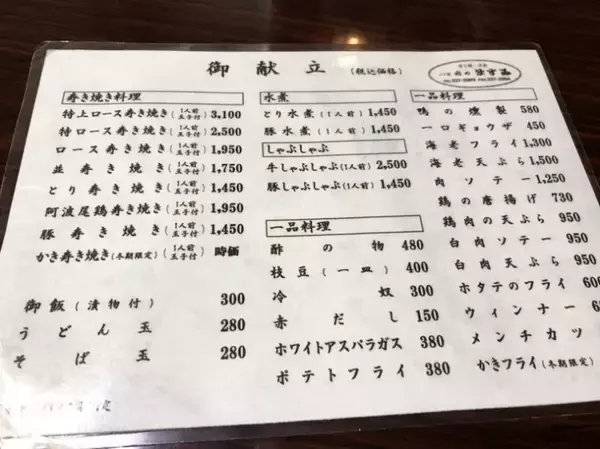 御献立 (税込価格)
寿き焼き料理
特上ロース寿き焼き(1人前 玉子付) 3,100
特ロース寿き焼き(1人前 玉子付) 2,500
ロース寿き焼き(1人前 玉子付) 1,950
並寿き焼き(1人前 玉子付) 1,750
とり寿き焼き(1人前 玉子付) 1,450
阿波尾鶏寿き焼き(1人前 玉子付) 1,950
豚寿き焼き(1人前 玉子付) 1,450
かき寿き焼き(冬期限定)(1人前 玉子付) 時価
御飯(漬物付) 300
うどん玉 280
そば玉 280
水煮
とり水煮(1人前) 1,450
豚水煮(1人前) 1,450
しゃぶしゃぶ
牛しゃぶしゃぶ(1人前) 2,500
豚しゃぶしゃぶ(1人前) 1,450
一品料理
酢の物 480
枝豆(一皿) 400
冷奴 300
赤だし 150
ホワイトアスパラガス 380
ポテトフライ 380
一品料理
鴨の燻製 580
一口ギョウザ 450
海老フライ 1,300
海老天ぷら 1,500
肉ソテー 1,250
鶏の唐揚げ 730
鶏肉の天ぷら 950
白肉ソテー 950
白肉天ぷら 950
ホタテのフライ
ウィンナー
メンチカツ
かきフライ(冬期限定)